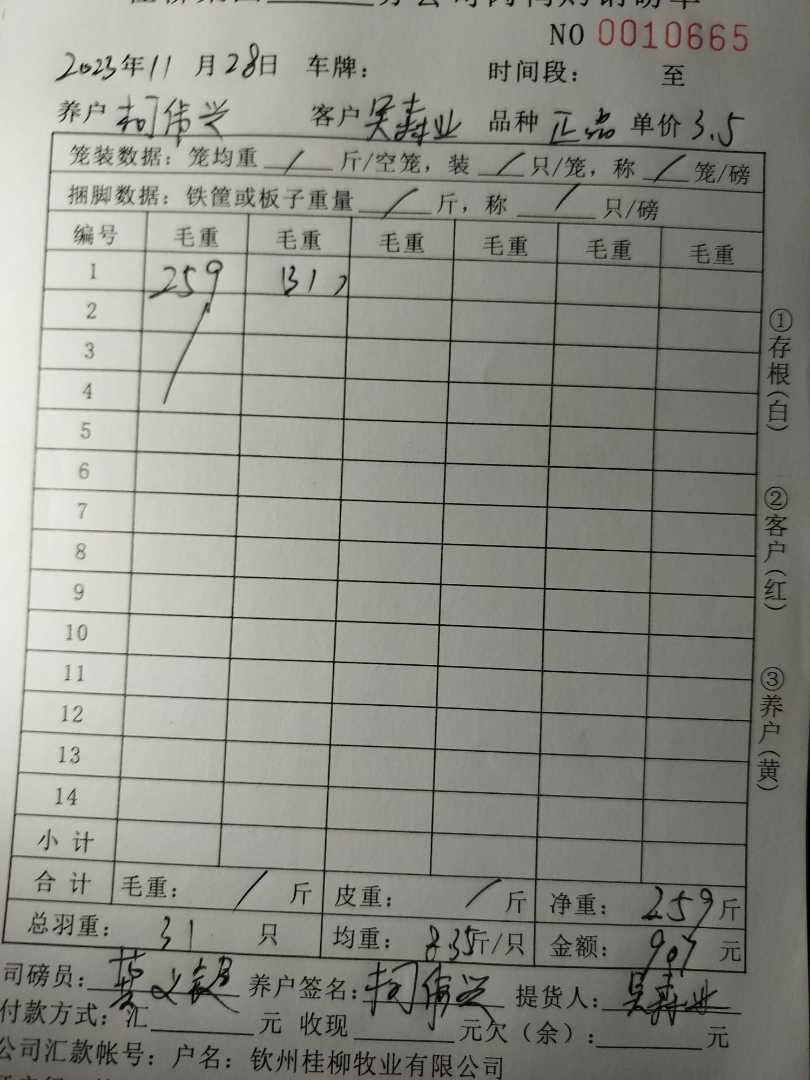 NO 0010665
2023年11月28日 车牌： 时间段： 至
养户 柯伟兴 客户 吴寿业 品种 正品 单价 3.5
笼装数据：笼均重 / 斤/空笼，装 / 只/笼，称 / 笼/磅
捆脚数据：铁筐或板子重量 / 斤，称 / 只/磅
编号 毛重 毛重 毛重 毛重 毛重 毛重
1 259
2
3
4
5
6
7
8
9
10
11
12
13
14
小计
合计 毛重： / 斤 皮重： / 斤 净重： 259 斤
总羽重： 31 只 均重： 8.35斤/只 金额： 907 元
司磅员： 养户签名：柯伟兴 提货人：吴寿业
付款方式：汇 元 收现 元欠（余）： 元
公司汇款帐号：户名：钦州桂柳牧业有限公司
①存根（白） ②客户（红） ③养户（黄）